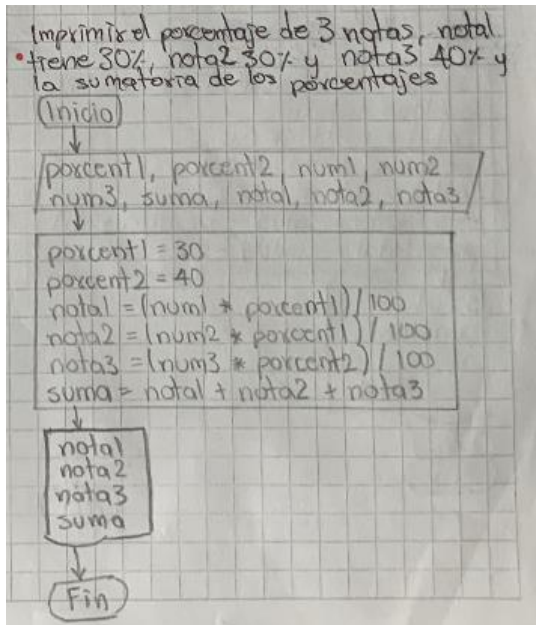 Imprimir el porcentaje de 3 notas, nota1
• tiene 30%, nota2 30% y nota3 40% y
la sumatoria de los porcentajes
Inicio
porcent1, porcent2, num1, num2
num3, suma, nota1, nota2, nota3
porcent1 = 30
porcent2 = 40
nota1 = (num1 * porcent1) / 100
nota2 = (num2 * porcent1) / 100
nota3 = (num3 * porcent2) / 100
suma = nota1 + nota2 + nota3
nota1
nota2
nota3
suma
Fin